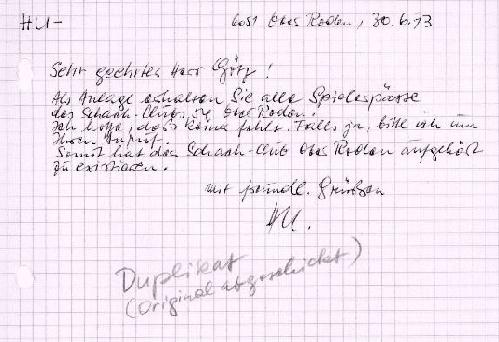 Ober Roden, 30.6.73
Sehr geehrter Herr Götz!
Als Anlage erhalten Sie alle Spielerpässe
des Schach-Club Ober Roden.
Ich hoffe, daß keine fehlt. Falls ja, bitte ich um
Ihren Anruf.
Somit hat der Schach-Club Ober Roden aufgehört
zu existieren.
mit freundl. Grüßen
Duplikat
(Original abgeschickt)